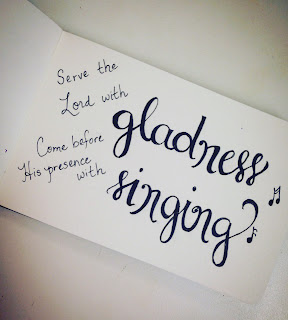 Serve the
Lord with
gladness
Come before
His presence
with
singing